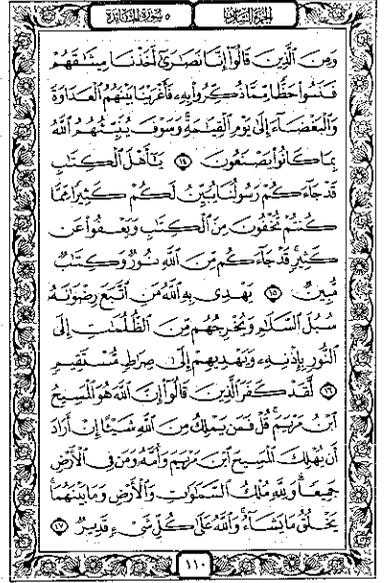 الجزء السادس
٥ سورة المائدة
وَمِنَ الَّذِينَ قَالُوٓا۟ إِنَّا نَصَٰرَىٰٓ أَخَذْنَا مِيثَٰقَهُمْ
فَنَسُوا۟ حَظًّا مِّمَّا ذُكِّرُوا۟ بِهِۦ فَأَغْرَيْنَا بَيْنَهُمُ الْعَدَاوَةَ
وَالْبَغْضَآءَ إِلَىٰ يَوْمِ الْقِيَٰمَةِ ۚ وَسَوْفَ يُنَبِّئُهُمُ اللَّهُ
بِمَا كَانُوا۟ يَصْنَعُونَ ١٤ يَٰٓأَهْلَ الْكِتَٰبِ
قَدْ جَآءَكُمْ رَسُولُنَا يُبَيِّنُ لَكُمْ كَثِيرًا مِّمَّا
كُنتُمْ تُخْفُونَ مِنَ الْكِتَٰبِ وَيَعْفُوا۟ عَن
كَثِيرٍ ۚ قَدْ جَآءَكُم مِّنَ اللَّهِ نُورٌ وَكِتَٰبٌ
مُّبِينٌ ١٥ يَهْدِى بِهِ اللَّهُ مَنِ اتَّبَعَ رِضْوَٰنَهُۥ
سُبُلَ السَّلَٰمِ وَيُخْرِجُهُم مِّنَ الظُّلُمَٰتِ إِلَى
النُّورِ بِإِذْنِهِۦ وَيَهْدِيهِمْ إِلَىٰ صِرَٰطٍ مُّسْتَقِيمٍ
١٦ لَّقَدْ كَفَرَ الَّذِينَ قَالُوٓا۟ إِنَّ اللَّهَ هُوَ الْمَسِيحُ
ابْنُ مَرْيَمَ ۚ قُلْ فَمَن يَمْلِكُ مِنَ اللَّهِ شَيْـًٔا إِنْ أَرَادَ
أَن يُهْلِكَ الْمَسِيحَ ابْنَ مَرْيَمَ وَأُمَّهُۥ وَمَن فِى الْأَرْضِ
جَمِيعًا ۗ وَلِلَّهِ مُلْكُ السَّمَٰوَٰتِ وَالْأَرْضِ وَمَا بَيْنَهُمَا ۚ
يَخْلُقُ مَا يَشَآءُ ۚ وَاللَّهُ عَلَىٰ كُلِّ شَىْءٍ قَدِيرٌ ١٧
١١٠